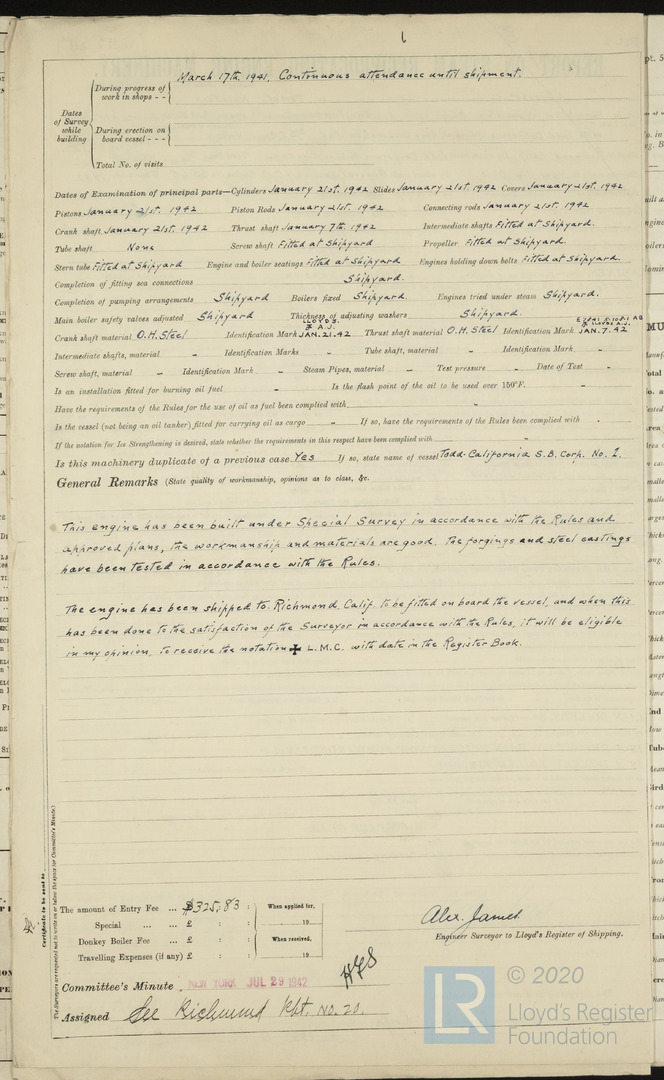 March 17th. 1941. Continuous attendance until shipment.
Dates of Survey while building
During progress of work in shops - -
During erection on board vessel - - -
Total No. of visits
Dates of Examination of principal parts—Cylinders January 21st. 1942 Slides January 21st. 1942 Covers January 21st. 1942
Pistons January 21st. 1942 Piston Rods January 21st. 1942 Connecting rods January 21st. 1942
Crank shaft January 21st. 1942 Thrust shaft January 7th. 1942 Intermediate shafts Fitted at Shipyard.
Tube shaft None Screw shaft Fitted at Shipyard Propeller Fitted at Shipyard.
Stern tube Fitted at Shipyard Engine and boiler seatings Fitted at Shipyard Engines holding down bolts Fitted at Shipyard.
Completion of fitting sea connections Shipyard.
Completion of pumping arrangements Shipyard Boilers fixed Shipyard. Engines tried under steam Shipyard.
Main boiler safety valves adjusted Shipyard Thickness of adjusting washers Shipyard.
Crank shaft material O.H. Steel Identification Mark LLOYDS A.J. JAN. 21. 42 Thrust shaft material O.H. Steel Identification Mark LLOYDS A.J. JAN. 7. 42
Intermediate shafts, material - Identification Marks - Tube shaft, material - Identification Mark -
Screw shaft, material - Identification Mark - Steam Pipes, material - Test pressure - Date of Test -
Is an installation fitted for burning oil fuel - Is the flash point of the oil to be used over 150°F. -
Have the requirements of the Rules for the use of oil as fuel been complied with -
Is the vessel (not being an oil tanker) fitted for carrying oil as cargo - If so, have the requirements of the Rules been complied with -
If the notation for Ice Strengthening is desired, state whether the requirements in this respect have been complied with -
Is this machinery duplicate of a previous case Yes If so, state name of vessel Todd-California S.B. Corp. No. 1.
General Remarks (State quality of workmanship, opinions as to class, &c.
This engine has been built under Special Survey in accordance with the Rules and
approved plans, the workmanship and materials are good, the forgings and steel castings
have been tested in accordance with the Rules.
The engine has been shipped to Richmond, Calif. to be fitted on board the vessel, and when this
has been done to the satisfaction of the Surveyor in accordance with the Rules, it will be eligible
in my opinion, to receive the notation ✠ L.M.C. with date in the Register Book.
The Surveyors are requested not to write on or below the space for Committee's Minute.)
Certificate to be sent to
The amount of Entry Fee ... $325.83 : When applied for,
Special ... £ : : 19
Donkey Boiler Fee ... £ : : When received,
Travelling Expenses (if any) £ : : 19
Alex. James
Engineer Surveyor to Lloyd's Register of Shipping.
Committee's Minute NEW YORK JUL 29 1942
Assigned See Richmond Rpt. No. 20.
LR
© 2020
Lloyd's Register
Foundation